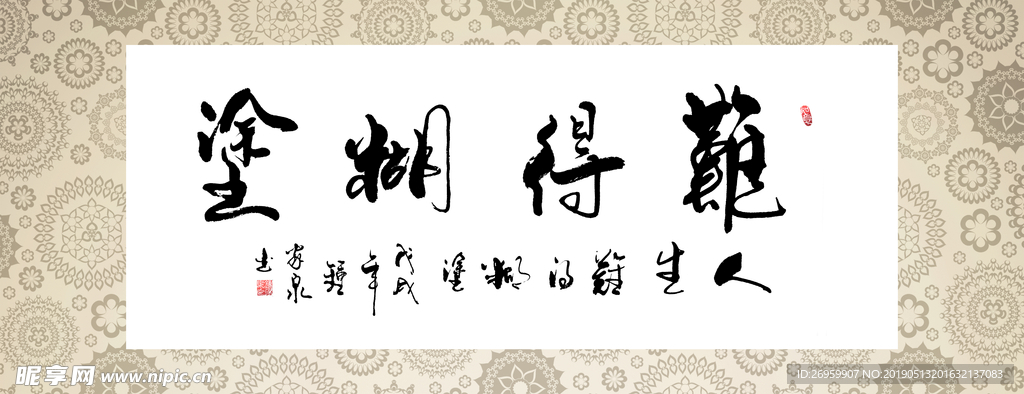 難得糊塗
人生難得糊塗
戊戌年
家泉
昵享网 www.nipic.cn
ID:26959907 NO:20190513201632137083